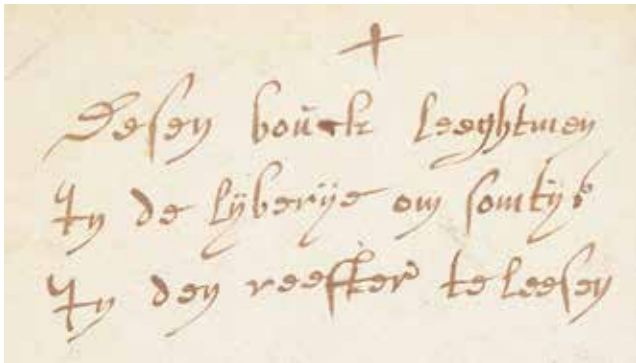 Desen bouck leeghtmen
In de lyberije om somtijs
In den reefter te leesen